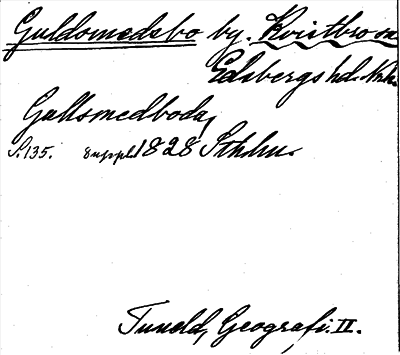 Guldsmedsbo by. Kvistbro sn
Edsbergs hd. Nrk.
Gullsmedboda,
S. 135. Suppl. 1828 Sthlm.
Tuneld, Geografi. II.